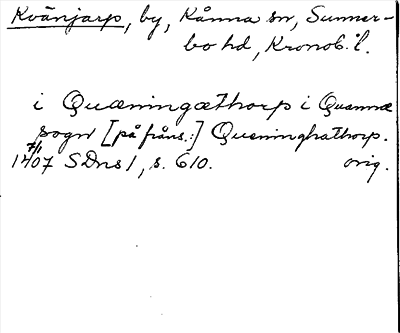 Kvänjarp, by, Kånna sn, Sunner-
bo hd, Kronob. l.
i Quæningæthorp i Quannæ
sogn [på frans.:] Queninghathorp.
7/1
1407 SDns 1, s. 610. orig.